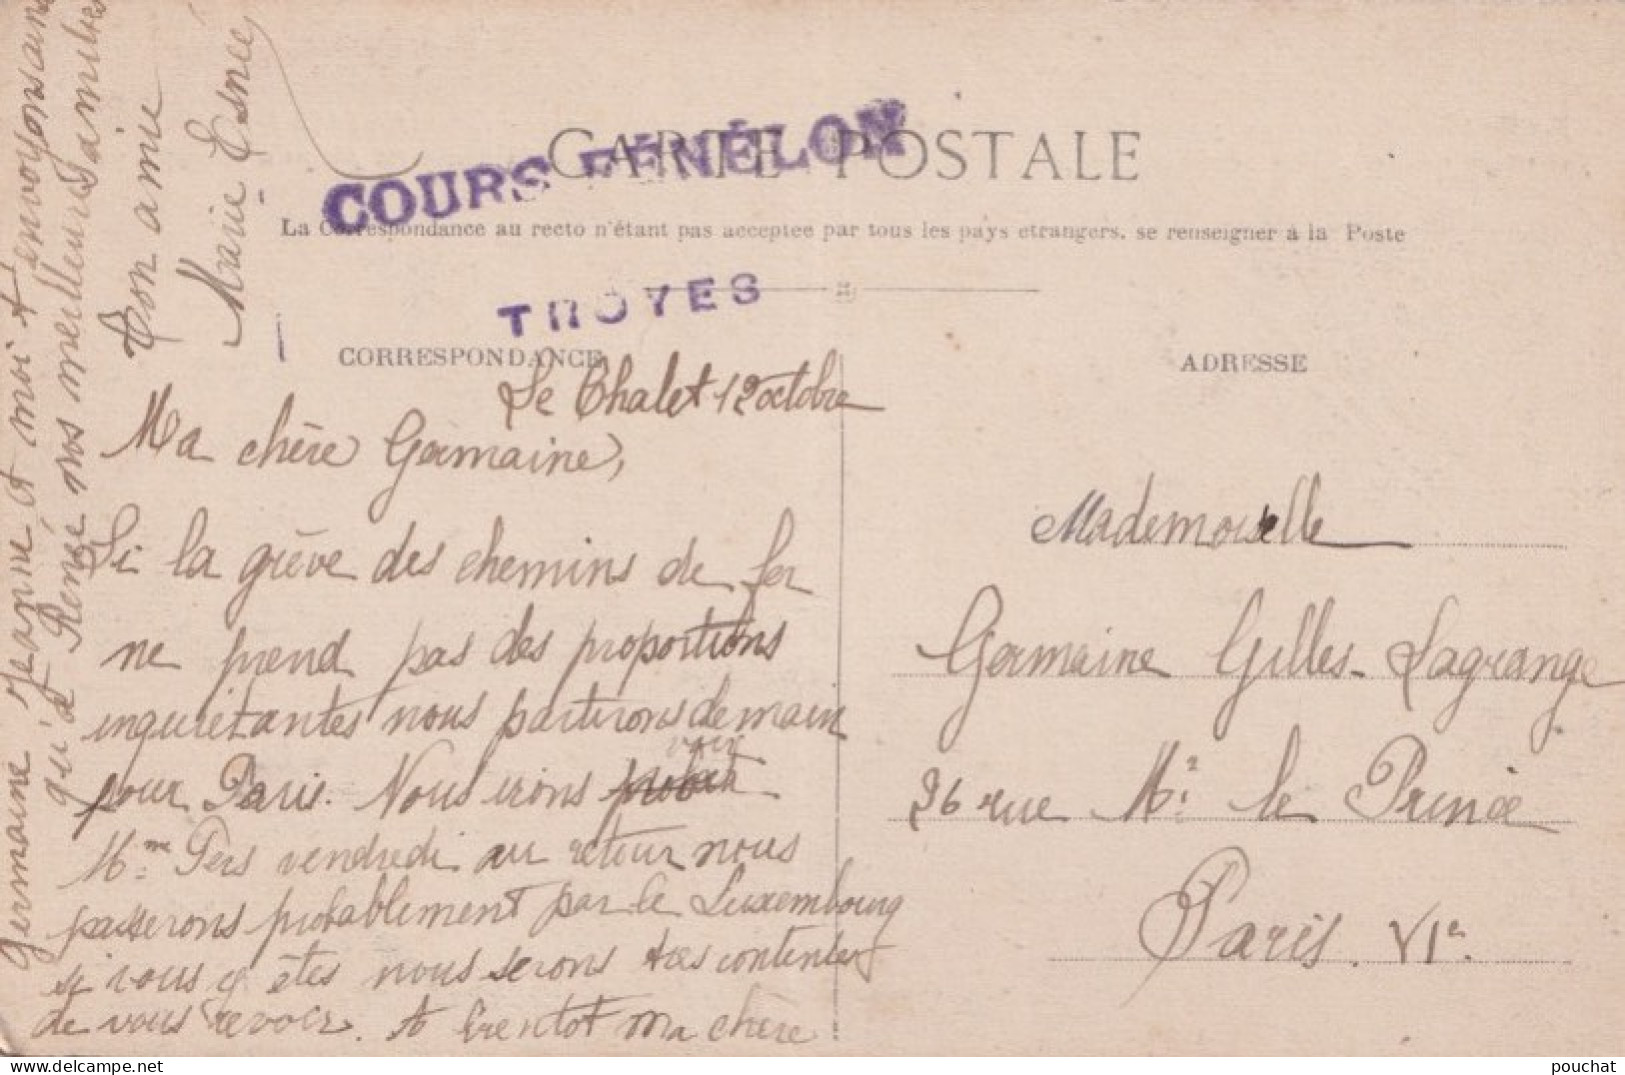 CARTE POSTALE
COURS FÉNÉLON
La Correspondance au recto n'étant pas acceptée par tous les pays étrangers, se renseigner à la Poste
TROYES
CORRESPONDANCE
Le Chalet 12 octobre
Ma chère Germaine,
Si la grève des chemins de fer
ne prend pas des proportions
inquiétantes nous partirons demain
pour Paris. Nous irons voir
Mme Pers vendredi au retour nous
passerons probablement par le Luxembourg
si vous y êtes nous serons très contentes
de vous revoir. A bientôt ma chère
Germaine Jeanne et moi t'envoyons ainsi
qu'à Renée nos meilleures amitiés
Ton amie
Marie Esnée
ADRESSE
Mademoiselle
Germaine Gilles-Lagrange
26 rue Mr le Prince
Paris. VIe.
pouchat